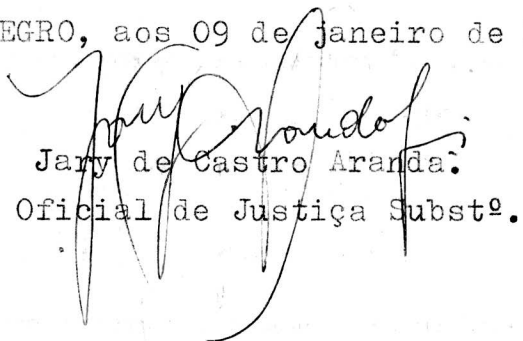 EGRO, aos 09 de janeiro de
Jary de Castro Aranda.
Oficial de Justiça Substº.